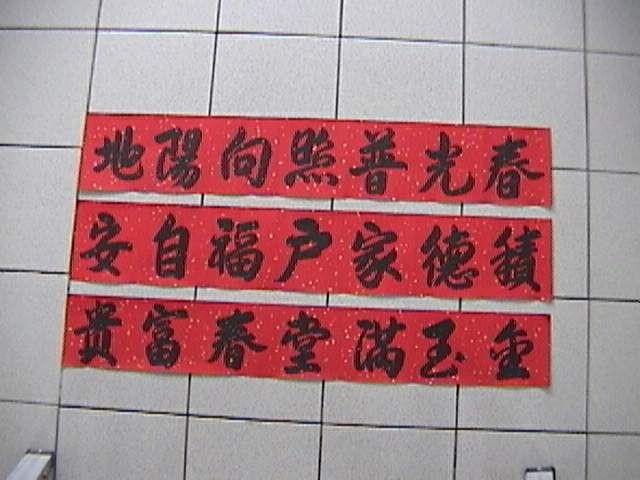 春光普照向陽地
積德家户福自安
金玉滿堂春富貴